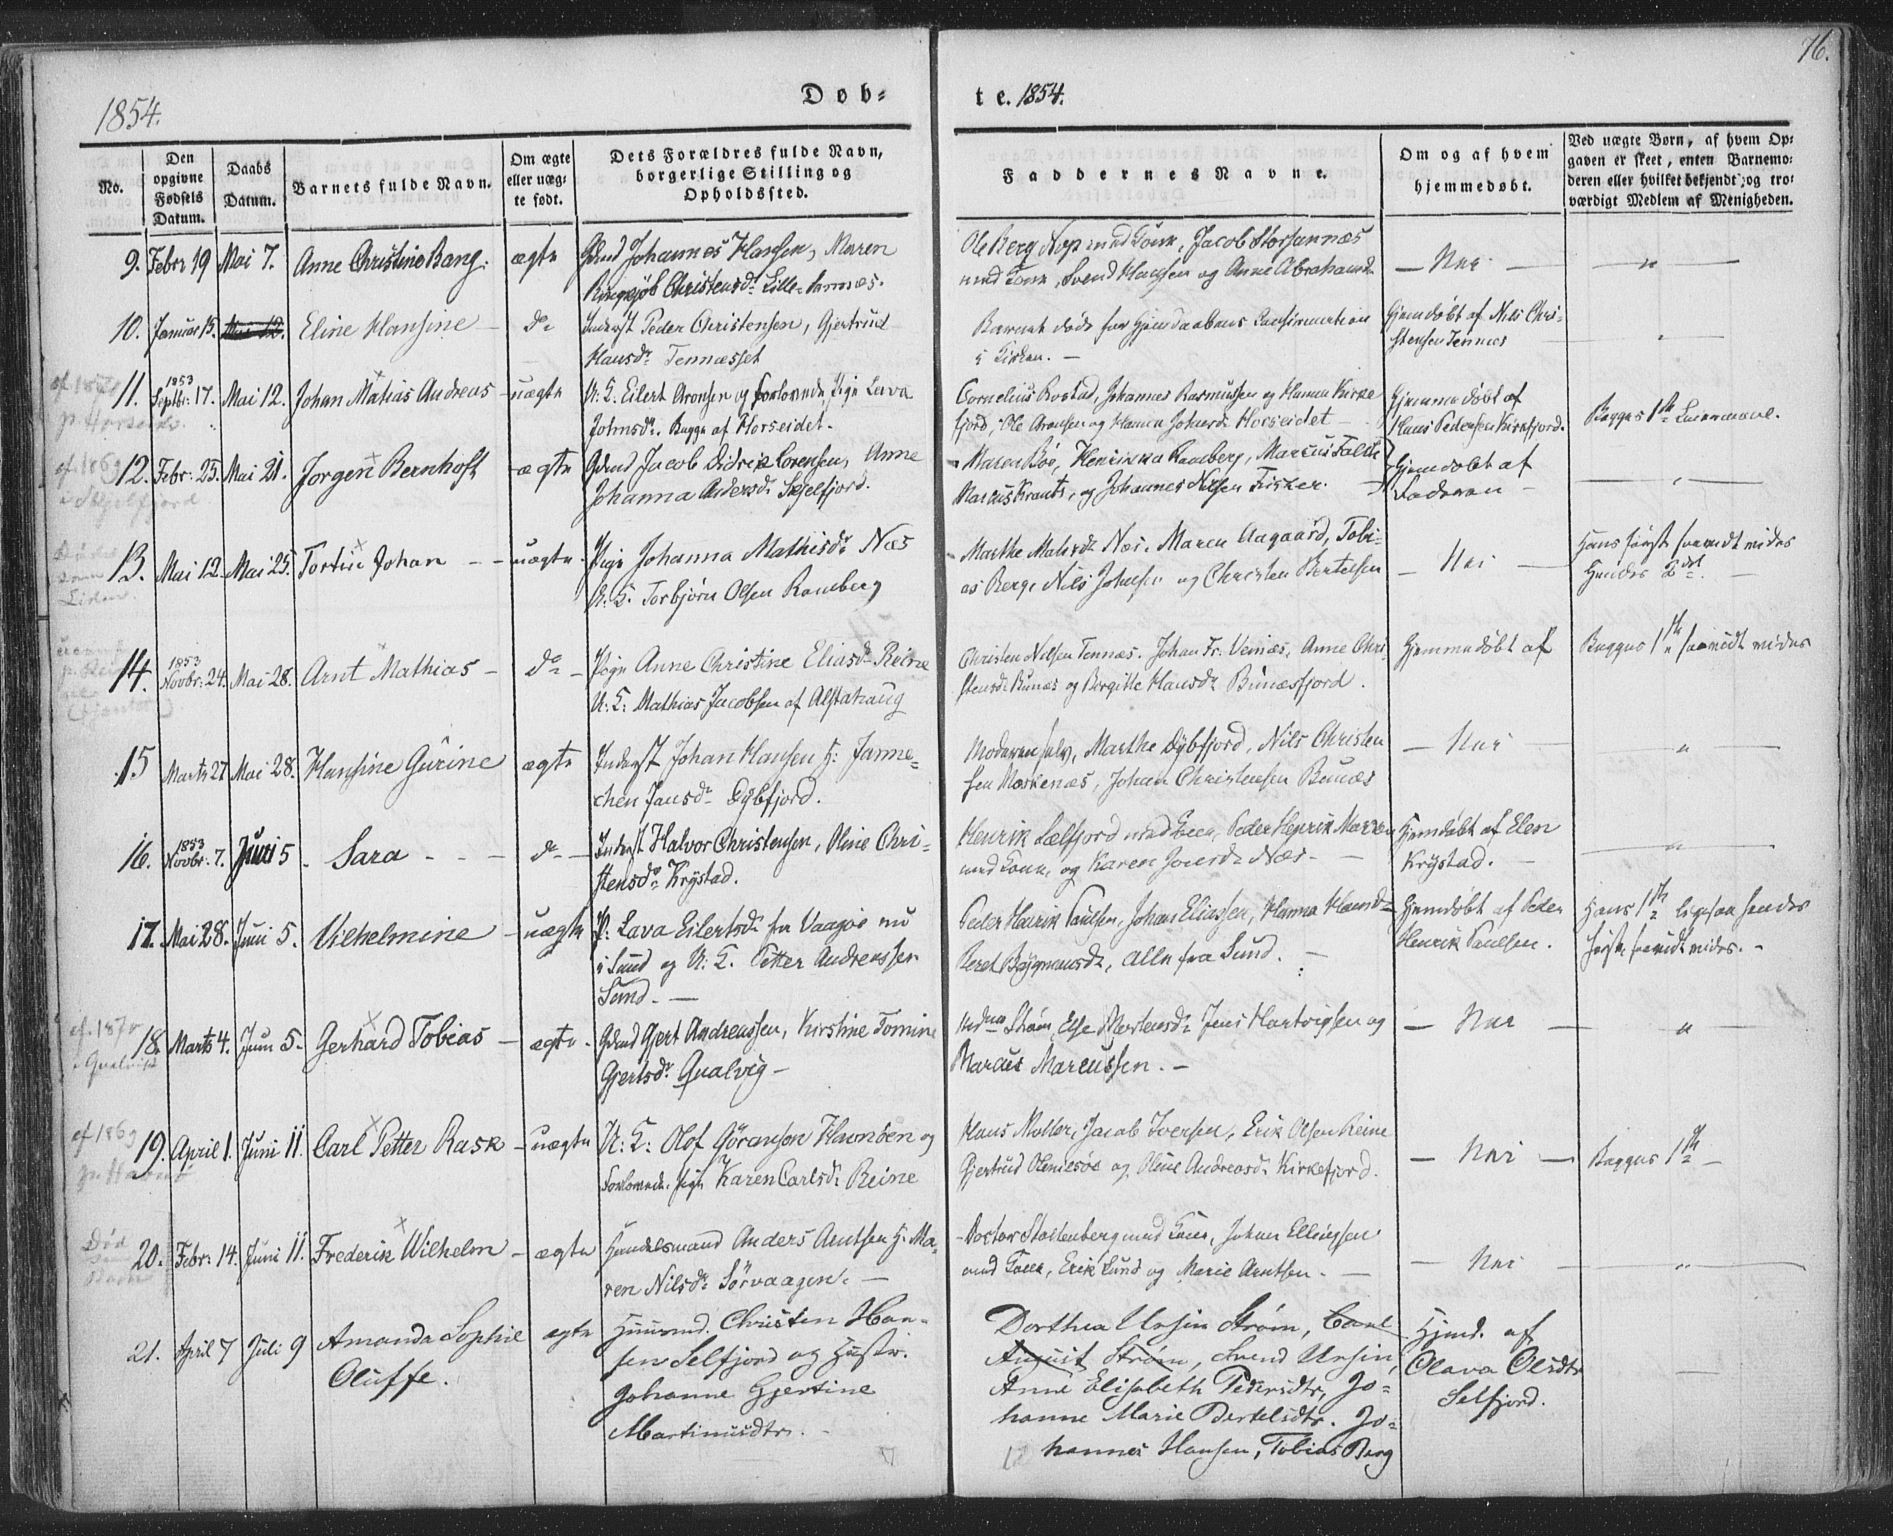 76.
1854.
Døb-
te. 1854.
No.
Den opgivne Fødsels Datum.
Daabs Datum.
Barnets fulde Navn.
Om ægte eller uæg-te født.
Dets Forældres fulde Navn, borgerlige Stilling og Opholdssted.
Faddernes Navne.
Om og af hvem hjemmedøbt.
Ved uægte Børn, af hvem Op-gaven er skeet, enten Barnemo-deren eller hvilket bekjendt og tro-værdigt Medlem af Menigheden.
9. Febr 19 Mai 7. Anne Christine Bang. ægte
Gdmd Johannes Hansen, Maren
Christensd. Lille
Ole Berg med Kone, Jacob
med Kone, Svend Hansen og Anne Abrahamsd.
— Nei — "
10. Januar 15. Mai 12. Eline Hansine — do
Inderst Peder Christensen, Gjertrud
Hansdr. Tennæsset
Barnet døde før Hjemdaabens
i Kirken. —
Hjemdøbt af Nils Chri-
stensen Tennæs "
11. 1853 Septbr. 17. Mai 12. Johan Matias Andreas — uægte
U. K. Eilert Aronsen og forlovede Pige Lava
Johnsdr. Begge af Horseidet.
Cornelius Rostad, Johannes Rasmussen og Hanna Kirke-
fjord, Ole Aronsen og Hanna Johnsdr. Horseidet —
Hjemmedøbt af
Hans Pedersen Kirkfjord.
Begges 1ste Leiermaal.
12. Febr. 25. Mai 21. Jørgen Bernhoft — ægte
Gdmd Jacob Didrik Lorensen, Anne
Johanna Andersdr. Skjelfjord.
Maren Bøe, Henrikka Ramberg, Marcus
Marcus Krantz, og Johannes Nilsen
Hjemdøbt af
Faderen — "
13. Mai 12. Mai 25. Johan — uægte
Pige Johanna Mathisdr. Næs
U. K. Torbjørn Olsen Ramberg
Marthe Næs. Maren Aagaard, Tobi-
as Berg, Nils Johnsen og Christen Bertelsen
— Nei —
Hans første saavidt vides
Hendes 2det. —
14. 1853 Novbr. 24. Mai 28. Arnt Mathias — do
Pige Anne Christine Eliasdr. Reine
U. K. Mathias Jacobsen af Alstahaug
Christen Nilsen Tennæs. Johan Fr. Anne Chri-
stensdr. Bunæs og Birgitte Hansdr. Bunæsfjord.
Hjemmedøbt af
Begges 1ste saavidt vides
15 Marts 27 Mai 28. Hansine Gurine ægte
Inderst Johan Hansen H. Janne-
chen Jansdr. Dybfjord.
Moderen selv, Marthe Dybfjord, Nils Christen
sen Moskenæs, Johan Christensen Bunæs
— Nei — "
16. 1853 Novbr. 7. Juni 5 Sara — do
Inderst Halvor Christensen, Oline Chri-
stensdr. Krystad.
Henrik Selfjord med Kone, Peder Henrik
med Kone, og Karen Næs —
Hjemdøbt af Elen
Krystad. "
17. Mai 28. Juni 5. Vilhelmine — uægte
P. Lava Eilertsdr. fra Vaagøe nu
i Sund og U. K. Petter Andreassen
Sund. —
Peder Henrik Paulsen, Johan Eliassen, Hanna
Beret alle fra Sund. —
Hjemdøbt af Peder
Henrik Paulsen.
Hans 1ste ligesaa hendes
første saavidt vides. —
18. Marts 4. Juni 5. Gerhard Tobias — ægte
Gdmd Gjert Andreassen, Kirstine Tomine
Gjertsdr. Qualvig —
Strøm, Else Mortensdr. Jens Hartvigsen og
Marcus Marcussen. —
— Nei — "
19. April 1. Juni 11. Carl Petter Rask — uægte
U. K. Olof Göransen Havnöen og
Forlovede Pige Karen Carlsdr. Reine
Hans Møller, Jacob Iversen, Erik Olsen Reine
Gjertrud Olenilsøe og Oline Andreasdr. Kirkefjord.
— Nei — Begges 1ste —
20. Febr. 14. Juni 11. Frederik Wilhelm — ægte
Handelsmand Anders Arntsen H. Ma-
ren Nilsdr. Sørvaagen. —
Doctor Stoltenberg med Kone, Johan Ellingsen
med Kone, Erik Lund og Marie Arntsen. —
— Nei — "
21. April 7 Juli 9 Amanda Sophie
Oluffe. ægte
Huusmd. Christen Han-
sen Selfjord og Hustr.
Johanne Gjertine
Martinusdtr.
Dorthea Ursin Strøm, Carl
August Strøm, Svend Ursin,
Anne Elisabeth Pedersdtr, Jo-
hanne Marie Bertelsdtr. Jo-
hannes Hansen, Tobias Berg
Hjemd. af
Olava Olsdtr
Selfjord. —